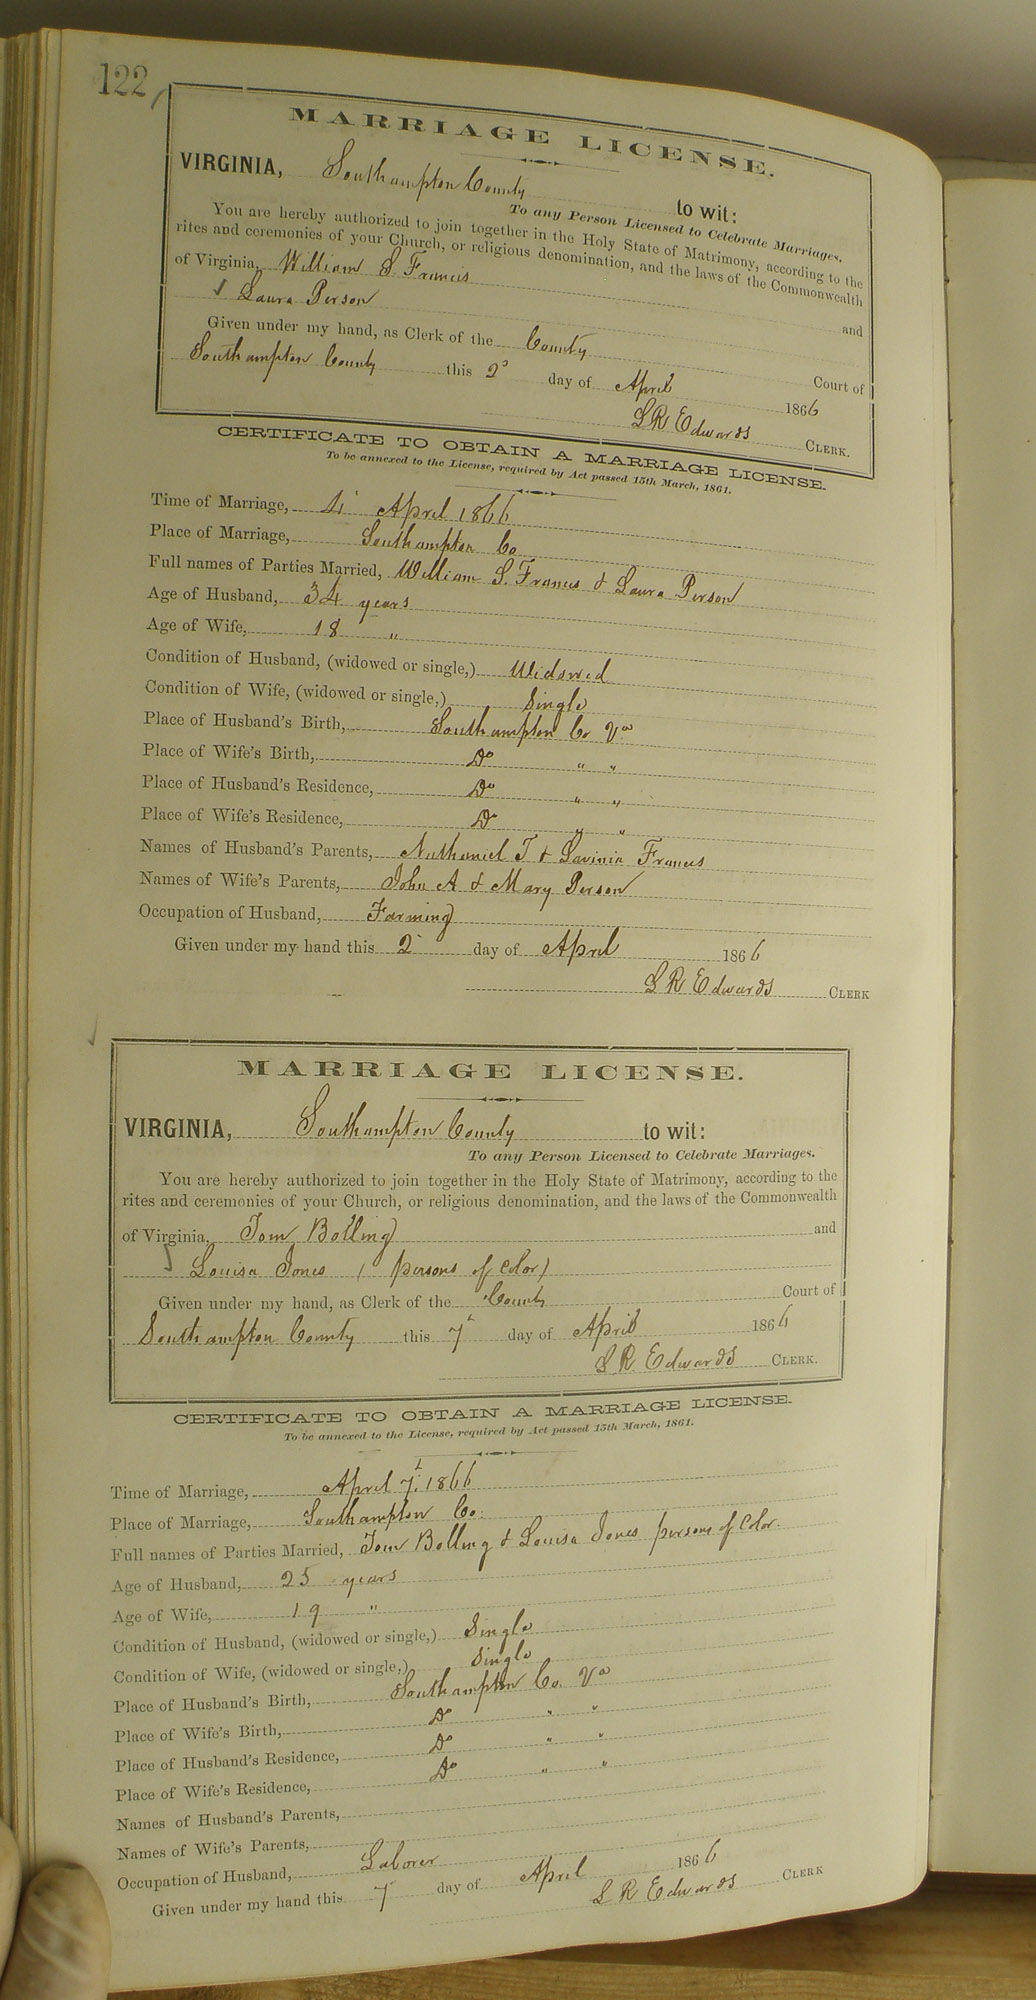 122
MARRIAGE LICENSE.
VIRGINIA, Southampton County to wit:
To any Person Licensed to Celebrate Marriages.
You are hereby authorized to join together in the Holy State of Matrimony, according to the
rites and ceremonies of your Church, or religious denomination, and the laws of the Commonwealth
of Virginia, William S Francis and
Laura Person
Given under my hand, as Clerk of the County Court of
Southampton County this 2d day of April 1866
L R Edwards CLERK.
CERTIFICATE TO OBTAIN A MARRIAGE LICENSE.
To be annexed to the License, required by Act passed 15th March, 1861.
Time of Marriage, 4 April 1866
Place of Marriage, Southampton Co
Full names of Parties Married, William S. Francis & Laura Person
Age of Husband, 34 years
Age of Wife, 18 "
Condition of Husband, (widowed or single,) Widowed
Condition of Wife, (widowed or single,) Single
Place of Husband's Birth, Southampton Co Va
Place of Wife's Birth, Do " "
Place of Husband's Residence, Do " "
Place of Wife's Residence, Do " "
Names of Husband's Parents, Nathaniel T & Lavinia Francis
Names of Wife's Parents, John A & Mary Person
Occupation of Husband, Farming
Given under my hand this 2 day of April 1866
L R Edwards CLERK
MARRIAGE LICENSE.
VIRGINIA, Southampton County to wit:
To any Person Licensed to Celebrate Marriages.
You are hereby authorized to join together in the Holy State of Matrimony, according to the
rites and ceremonies of your Church, or religious denomination, and the laws of the Commonwealth
of Virginia, Tom Bolling and
Louisa Jones (persons of Color)
Given under my hand, as Clerk of the County Court of
Southampton County this 7th day of April 1866
L R Edwards CLERK.
CERTIFICATE TO OBTAIN A MARRIAGE LICENSE.
To be annexed to the License, required by Act passed 15th March, 1861.
Time of Marriage, April 7th 1866
Place of Marriage, Southampton Co.
Full names of Parties Married, Tom Bolling & Louisa Jones persons of Color.
Age of Husband, 25 years
Age of Wife, 19 "
Condition of Husband, (widowed or single,) Single
Condition of Wife, (widowed or single,) Single
Place of Husband's Birth, Southampton Co. Va
Place of Wife's Birth, Do " "
Place of Husband's Residence, Do " "
Place of Wife's Residence, Do " "
Names of Husband's Parents,
Names of Wife's Parents,
Occupation of Husband, Laborer
Given under my hand this 7 day of April 1866
L R Edwards CLERK